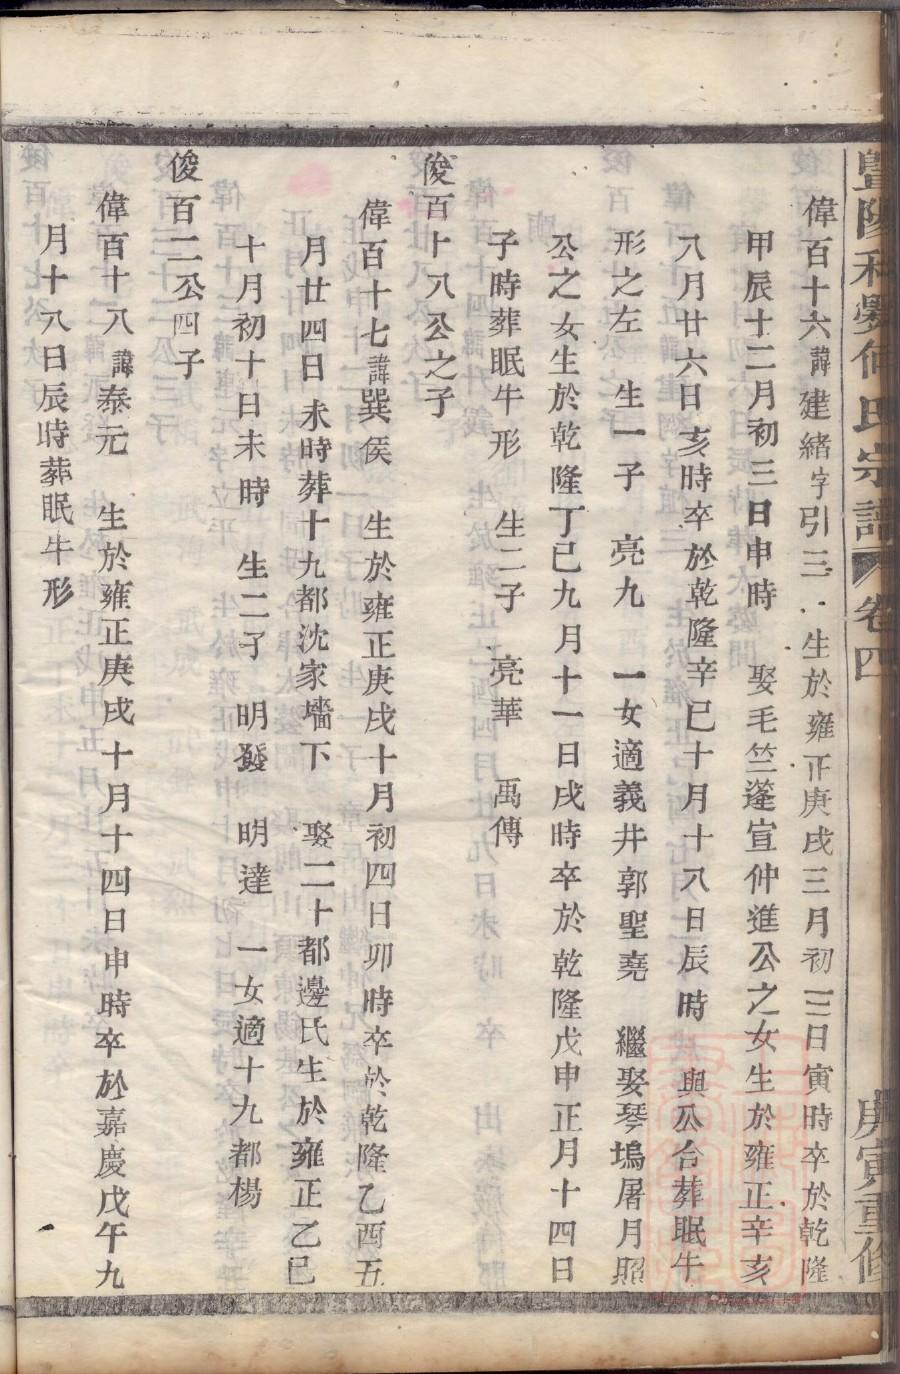 暨陽和樂何氏宗譜 卷四 庚寅重修
偉百十六諱建緒字引三 生於雍正庚戌三月初三日寅時卒於乾隆
甲辰十二月初三日申時 娶毛竺蓬宣仲進公之女生於雍正辛亥
八月廿六日亥時卒於乾隆辛巳十月十八日辰時 與公合葬眠牛
形之左 生一子 亮九 一女適義井郭聖堯 繼娶琴塢屠月照
公之女生於乾隆丁巳九月十一日戌時卒於乾隆戊申正月十四日
子時葬眠牛形 生二子 亮華 禹傳
俊百十八公之子
偉百十七諱巽侯 生於雍正庚戌十月初四日卯時卒於乾隆乙酉五
月廿四日未時葬十九都沈家墻下 娶二十都邊氏生於雍正乙巳
十月初十日未時 生二子 明發 明達 一女適十九都楊
俊百二公四子
偉百十八諱泰元 生於雍正庚戌十月十四日申時卒於嘉慶戊午九
月十八日辰時葬眠牛形